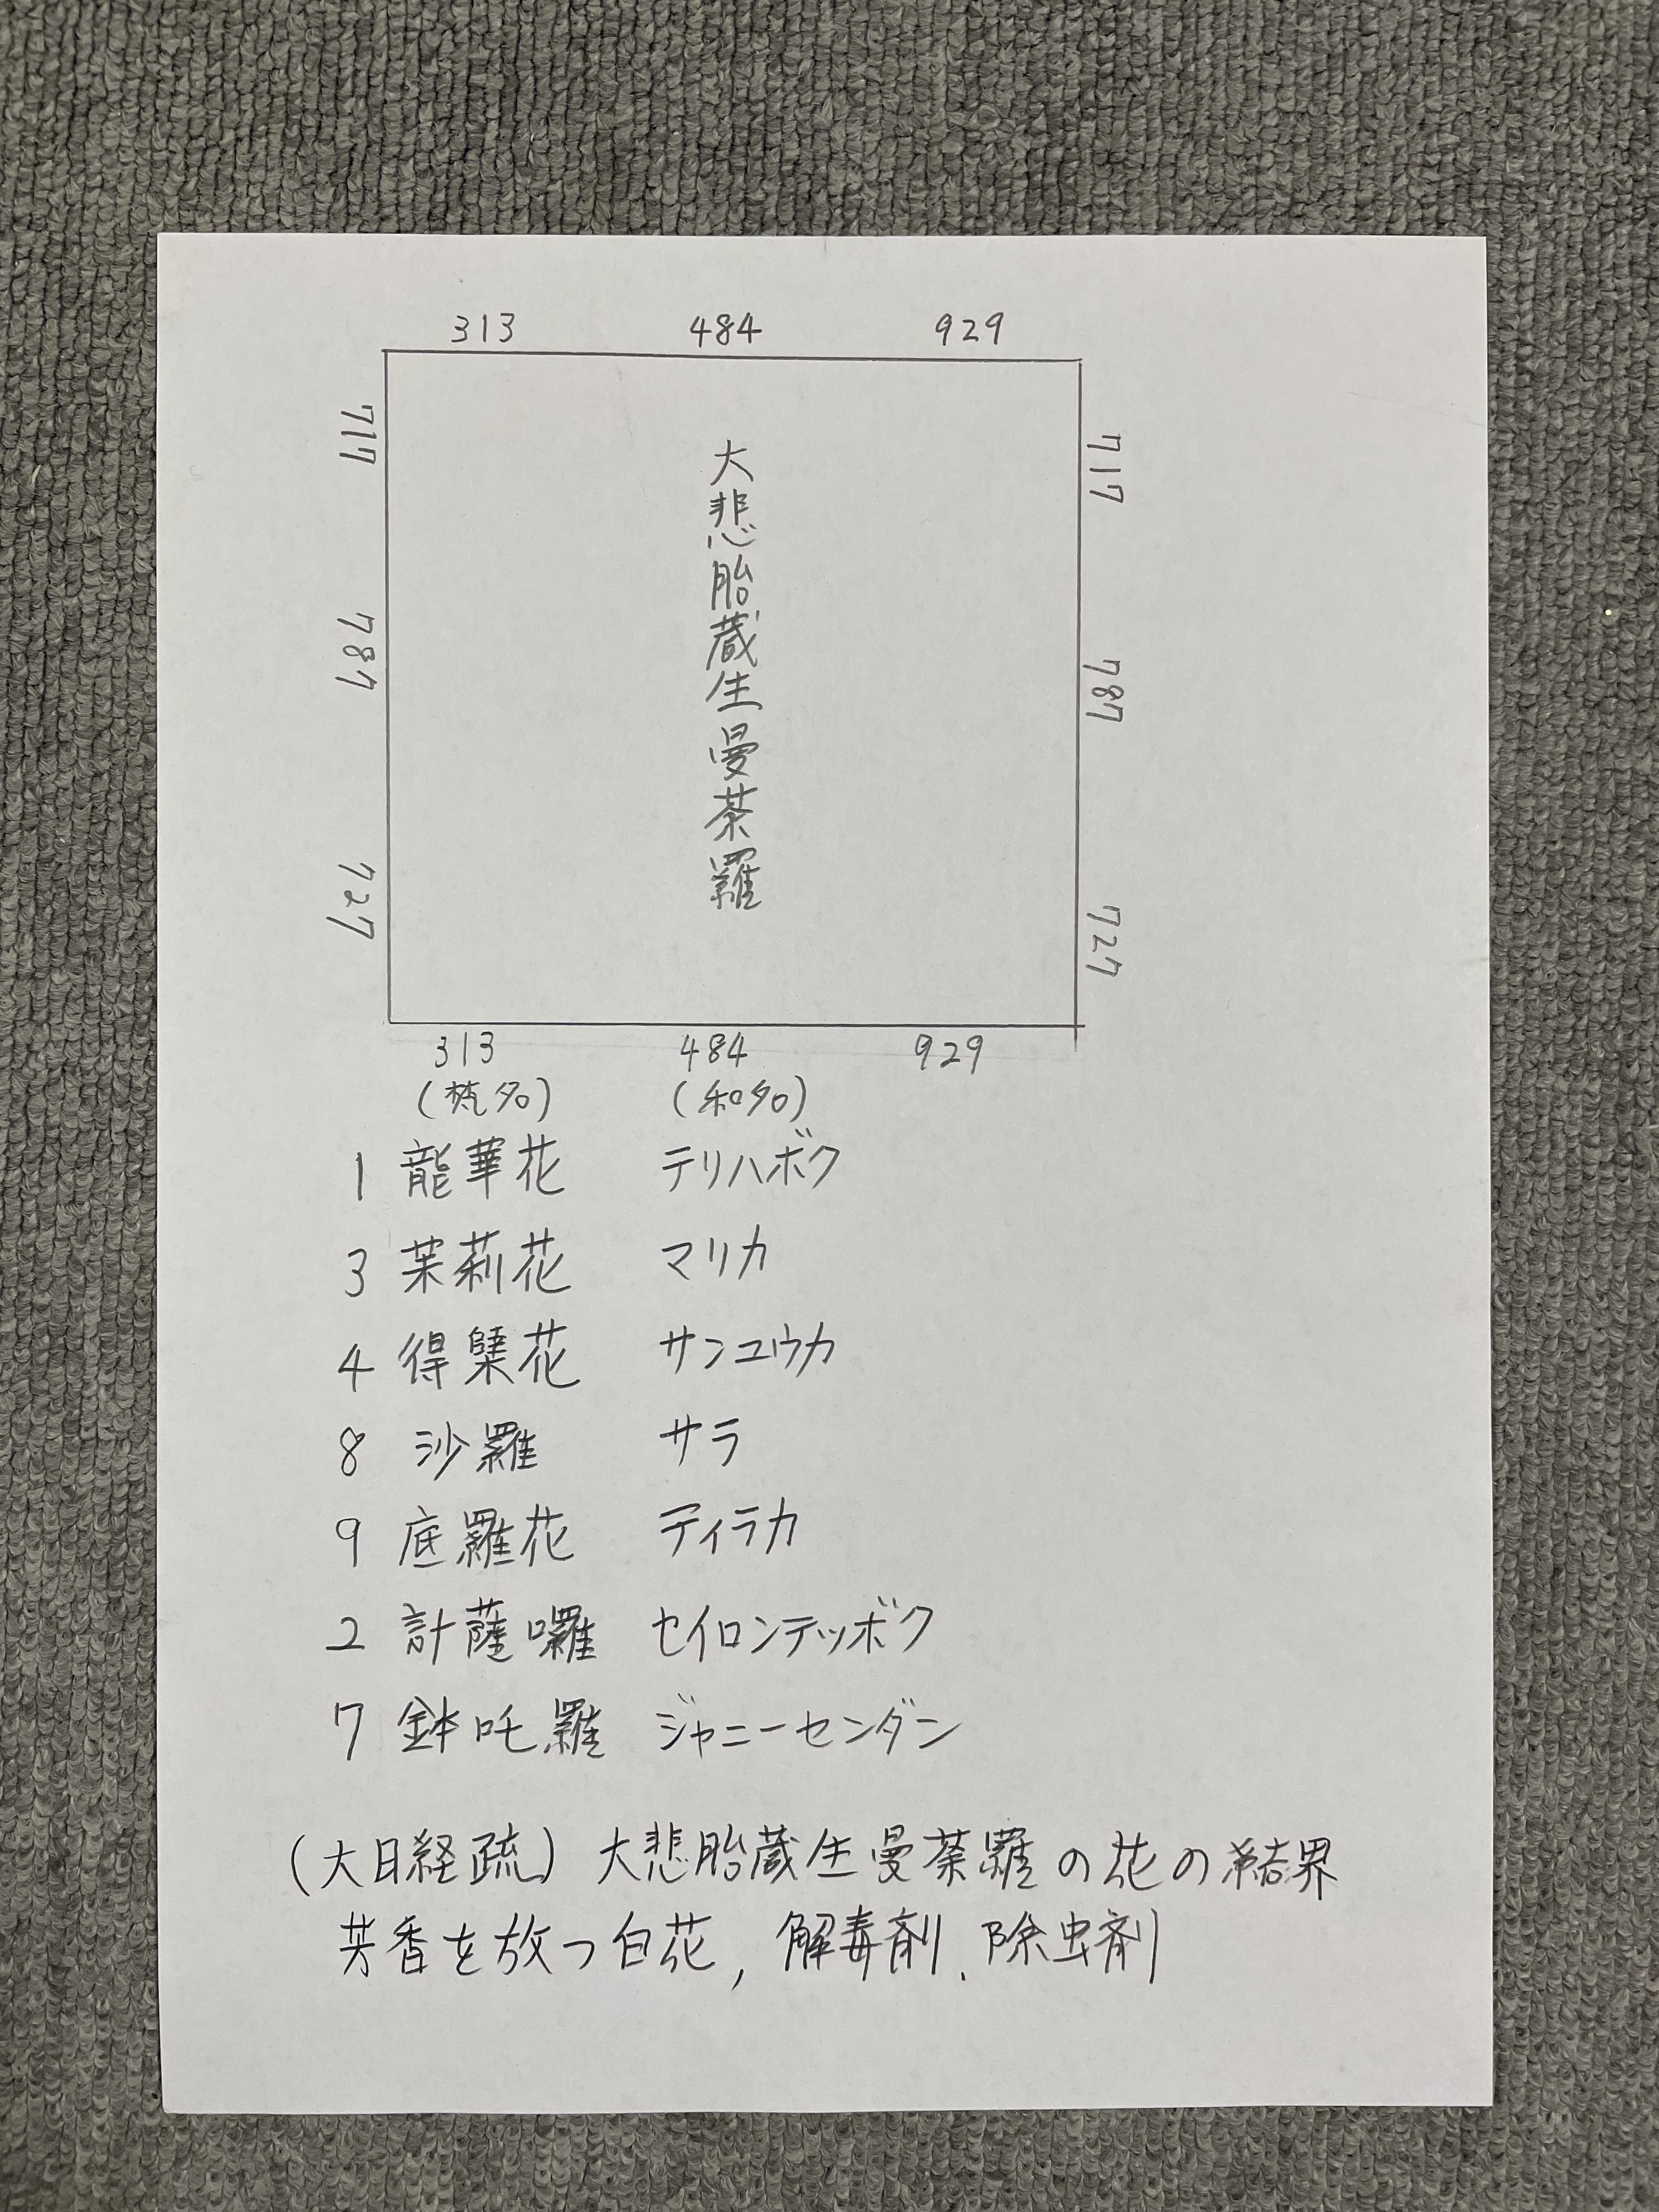 313 484 929
717
787
727
大悲胎蔵生曼荼羅
717
787
727
313 484 929
(梵名) (和名)
1 龍華花 テリハボク
3 茉莉花 マリカ
4 得蘖花 サンユウカ
8 沙羅 サラ
9 底羅花 ティラカ
2 計薩囉 セイロンテツボク
7 鉢吒羅 ジャニーセンダン
(大日経疏) 大悲胎蔵生曼荼羅の花の結界
芳香を放つ白花, 解毒剤、除虫剤